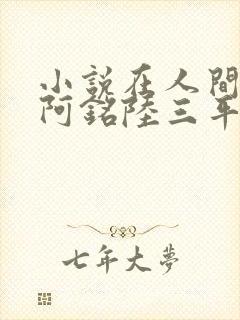 小説在人間
阿銘陸三年
七年大夢